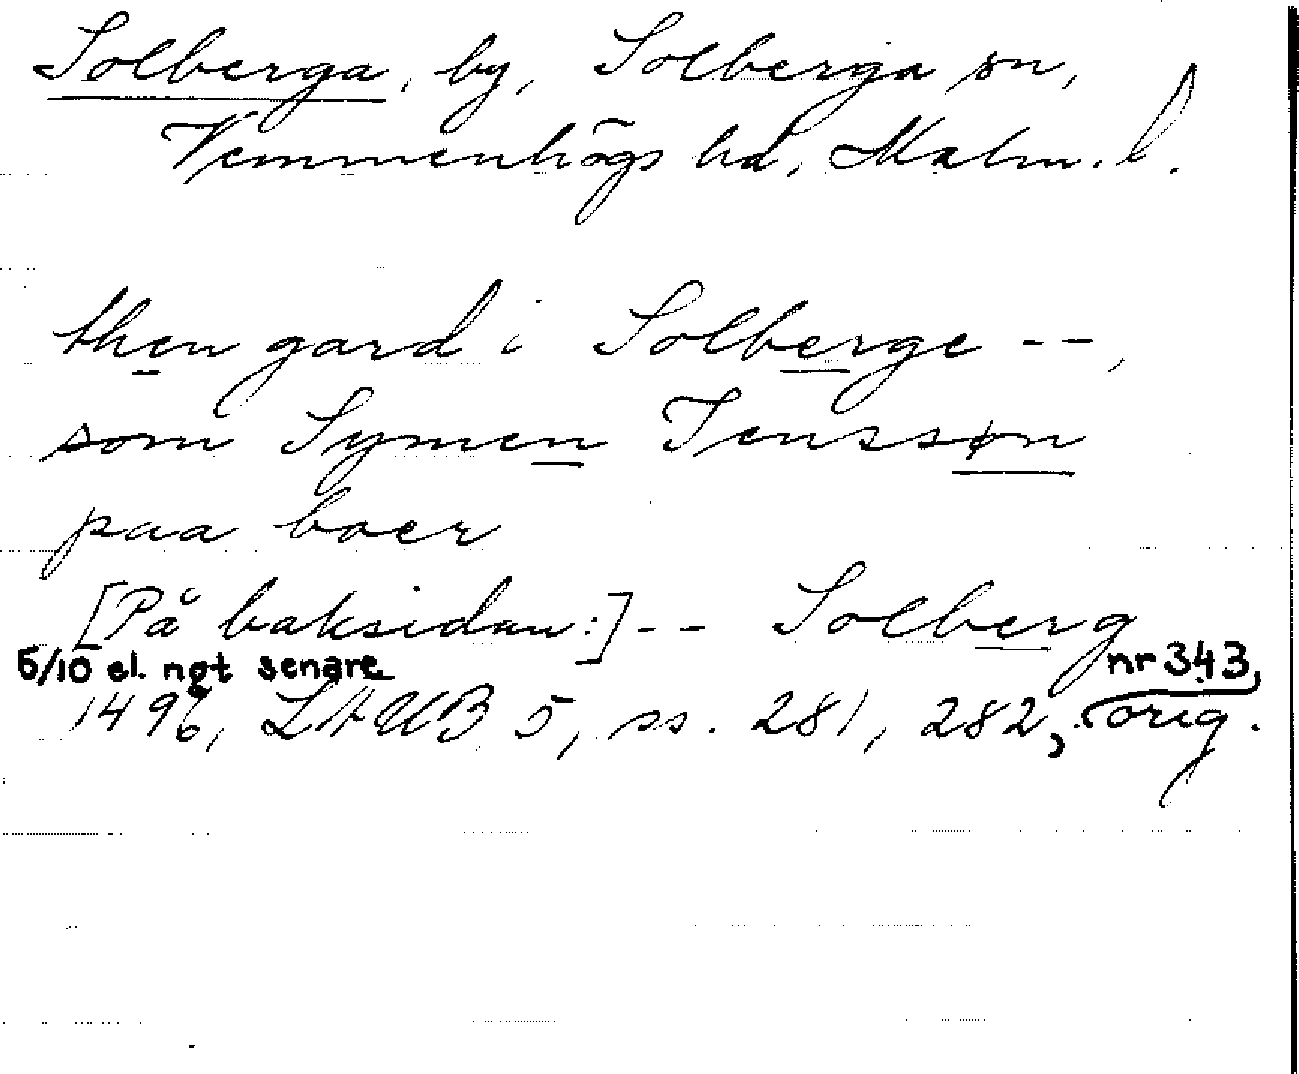 Solberga, by, Solberga sn,
Vemmenhögs hd, Malm. l.
then gard i Solberge --,
som Symen Jenssøn
paa boer
[På baksidan:] -- Solberg
5/10 el. ngt senare nr 343,
1496, LAUB 5, ss. 281, 282, orig.